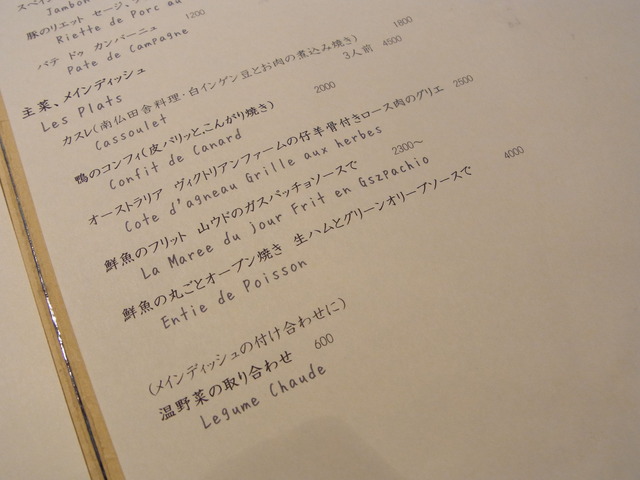 スペイン
Jambon
豚のリエット セージ、
Riette de Porc au
パテ ドゥ カンパーニュ 1200
Pate de Campagne
主菜、メインディッシュ
Les Plats
カスレ(南仏田舎料理・白インゲン豆とお肉の煮込み焼き) 1800
Cassoulet 3人前 4500
鴨のコンフィ(皮パリッと、こんがり焼き) 2000
Confit de Canard
オーストラリア ヴィクトリアンファームの仔羊骨付きロース肉のグリエ 2500
Cote d'agneau Grille aux herbes
鮮魚のフリット 山ウドのガスパッチョソースで 2300～
La Maree du jour Frit en Gszpachio
鮮魚の丸ごとオーブン焼き 生ハムとグリーンオリーブソースで 4000
Entie de Poisson
(メインディッシュの付け合わせに)
温野菜の取り合わせ 600
Legume Chaude